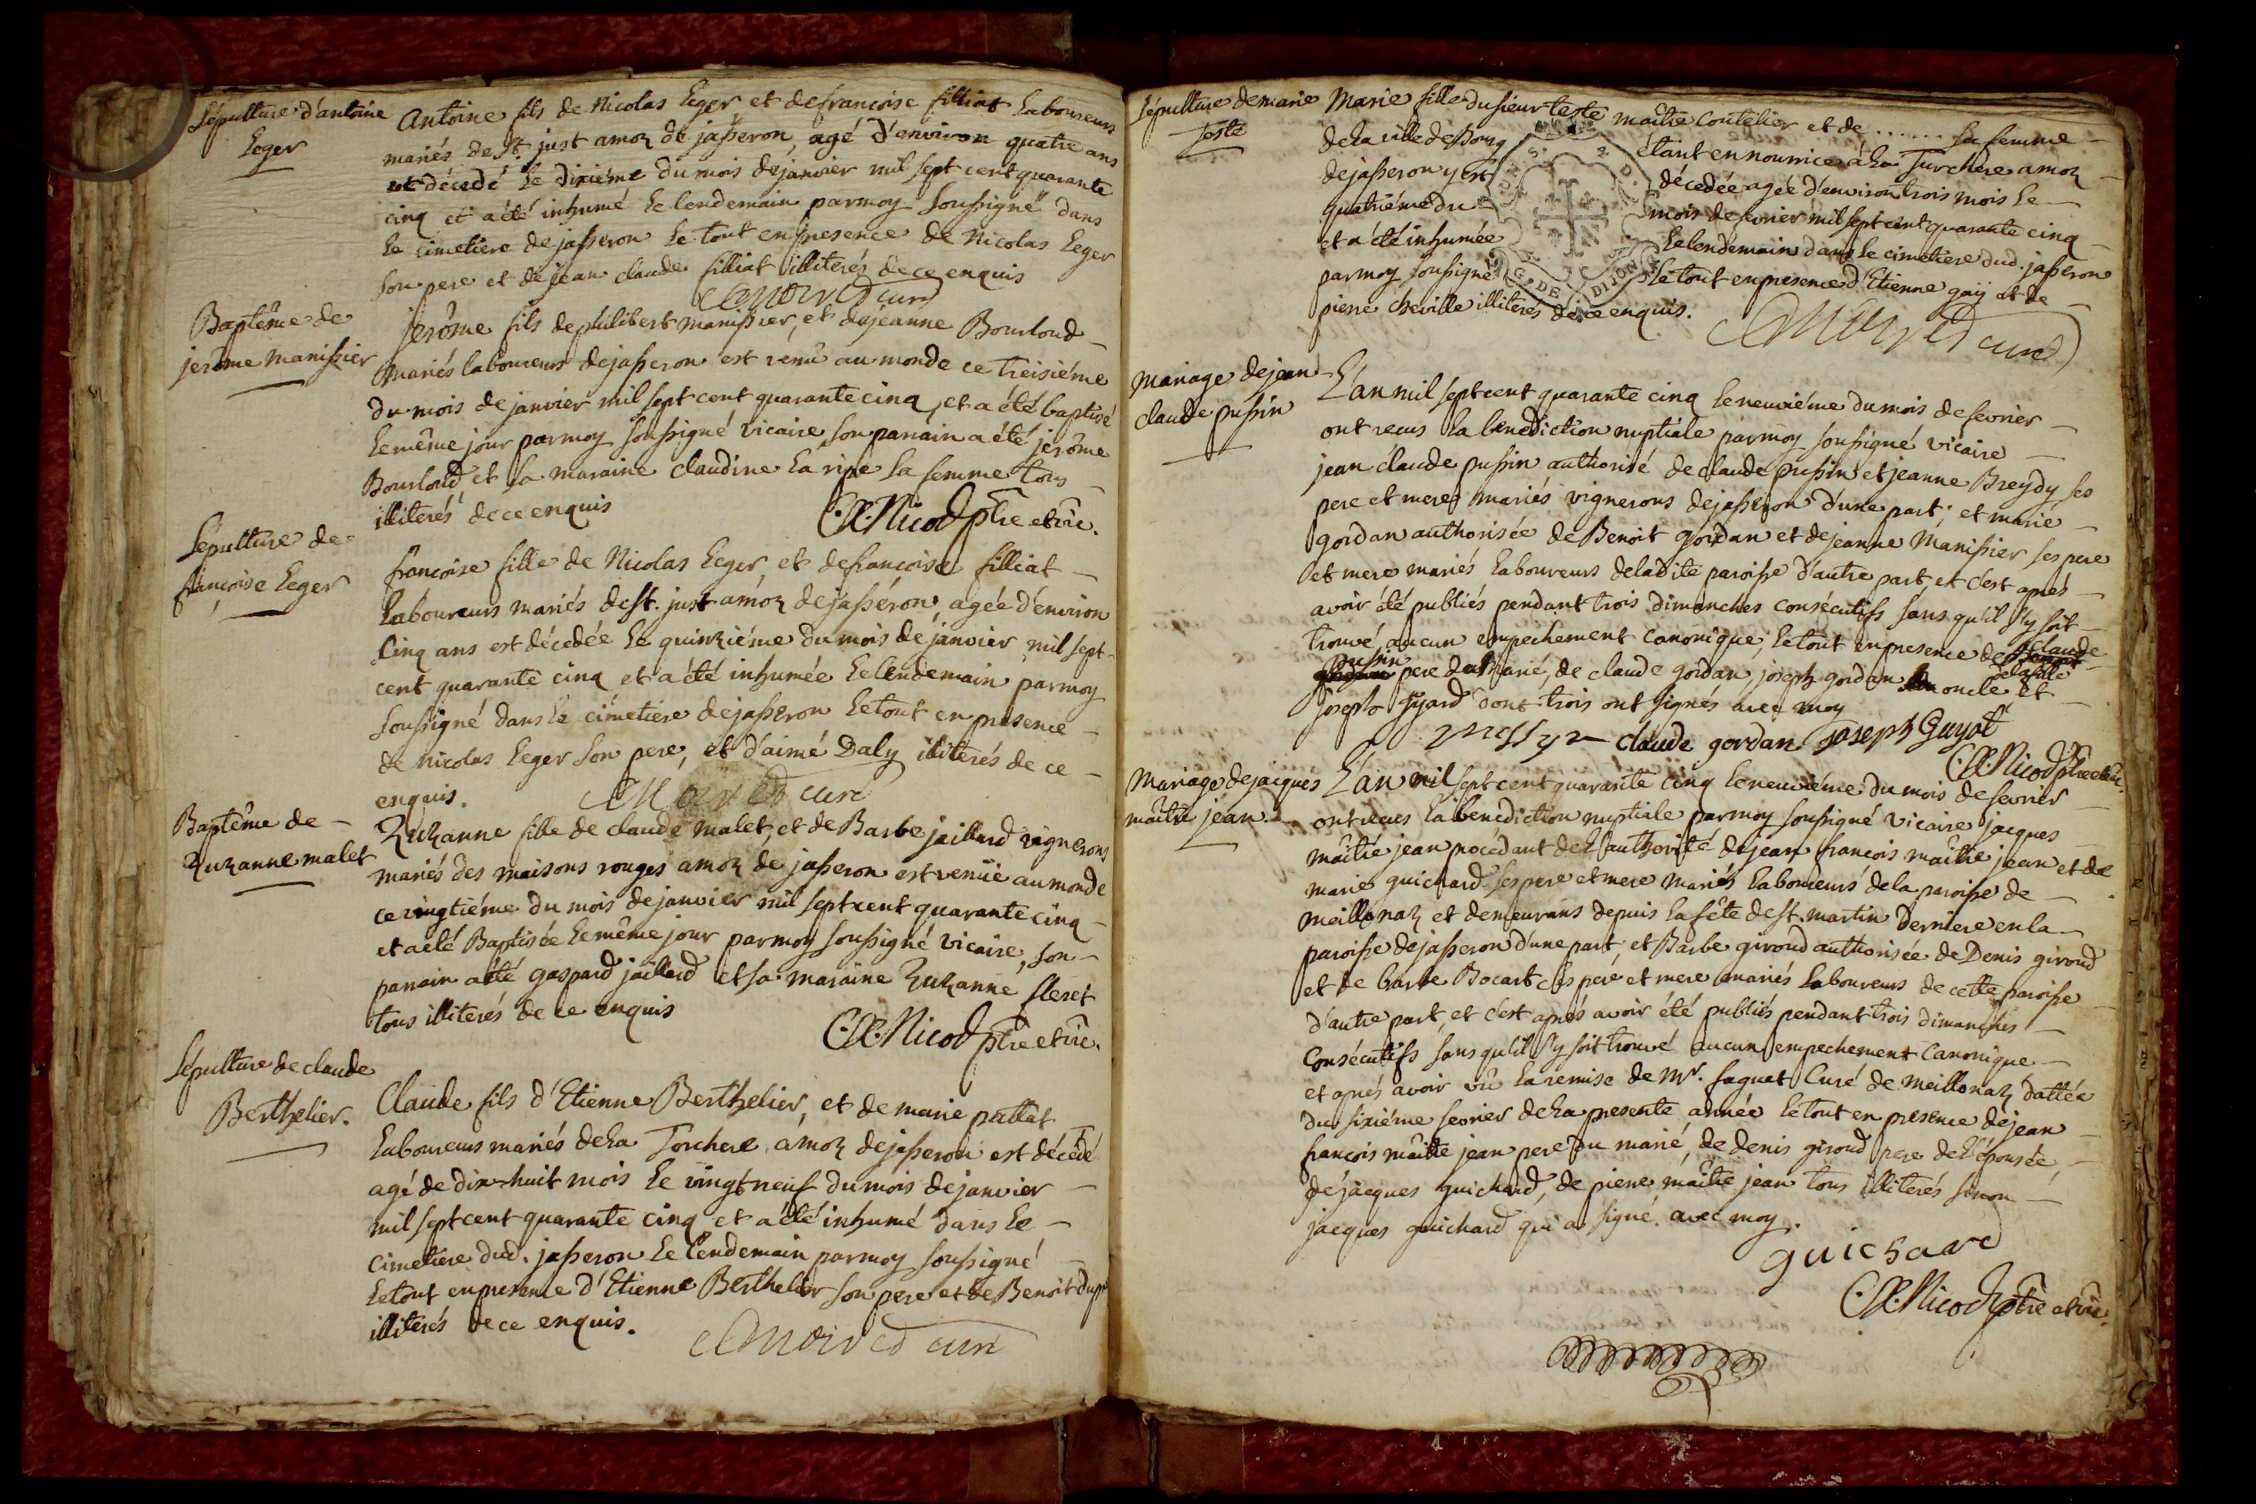 Sépulture d'antoine
Leger
Antoine fils de Nicolas Leger et de françoise filliat Laboureurs
mariés de St. just amoz de jasseron, agé d'environ quatre ans
est décedé Le dixiéme du mois de janvier mil sept cent quarante
cinq et a été inhumé Le lendemain par moy Soussigné dans
Le cimetiere de jasseron Le tout en presence de Nicolas Leger
Son pere et de jean claude filliat illiterés de ce enquis
curé
Baptême de
jerôme manissier
jerôme fils de philibert manissier, et de jeanne Bourloud
mariés laboureurs de jasseron est venû au monde ce treisiéme
du mois de janvier mil sept cent quarante cinq, et a été baptisé
Le même jour par moy Soussigné vicaire, Son parrain a été jerôme
Bourloud et Sa maraine claudine La ripe Sa femme tous
illiterés de ce enquis
Nicod ptre et vic.
Sépulture de
françoise Leger
françoise fille de Nicolas Leger et de françoise filliat
Laboureurs mariés de St. just amoz de jasseron, agée d'environ
Cinq ans est décedée Le quinziéme du mois de janvier mil sept
cent quarante cinq et a été inhumée Le lendemain par moy
Soussigné dans le cimetiere de jasseron Le tout en presence
de Nicolas Leger Son pere, et d'aimé Daly illiterés de ce
enquis.
curé
Baptême de
Zuzanne malet
Zuzanne fille de claude malet, et de Barbe jaillard vignerons
mariés des maisons rouges amoz de jasseron est venüe au monde
ce vingtiéme du mois de janvier mil sept cent quarante cinq
et a été Baptisée Le même jour par moy Soussigné vicaire, Son
parrain a été gaspard jaillard et Sa maraine Zuzanne
tous illiterés de ce enquis
Nicod ptre et vic.
Sépulture de claude
Berthelier.
Claude fils d'Etienne Berthelier, et de marie puttat
Laboureurs mariés de La Torchere amoz de jasseron est décedé
agé de dix huit mois Le vingt neuf du mois de janvier
mil sept cent quarante cinq et a été inhumé dans Le
cimetiere dud. jasseron Le lendemain par moy Soussigné
Le tout en presence d'Etienne Berthelier Son pere et de Benoit
illiterés de ce enquis.
curé
Sépulture de marie
Teste
Marie fille du sieur teste maître Coutelier et de ...... Sa femme
de la ville de Bourg étant en nourrice à La Turchere amoz
de jasseron y est décedée agée d'environ trois mois Le
quatriéme du mois de fevrier mil sept cent quarante cinq
et a été inhumée Le lendemain dans Le cimetiere dud. jasseron
par moy Soussigné Le tout en presence d'Etienne gay et de
pierre cheville illiterés de ce enquis.
G. DE DIJON
curé
mariage de jean
claude pussin
L'an mil sept cent quarante cinq Le neuviéme du mois de fevrier
ont recus La benediction nuptiale par moy Soussigné vicaire
jean claude pussin authorisé de claude pussin et jeanne Breydy ses
pere et mere mariés vignerons de jasseron d'une part; et marie
gordan authorisée de Benoit gordan et de jeanne Manissier ses pere
et mere mariés Laboureurs de ladite paroisse d'autre part, et c'est aprés
avoir été publiés pendant trois dimanches consécutifs Sans qu'il S'y soit
trouvé aucun empechement canonique; Le tout en presence de claude
pussin pere du marié, de claude gordan, joseph gordan oncle de la fille et
joseph Guyard dont trois ont signés avec moy
claude gordan joseph Guyot
Nicod ptre et vic.
Mariage de jacques
maître jean.
L'an mil sept cent quarante cinq Le neuviéme du mois de fevrier
ont recus La benediction nuptiale par moy soussigné vicaire jacques
maître jean procédant de L'authorité de jean françois maître jean et de
marie guichard Ses pere et mere mariés Laboureurs de la paroisse de
meillonaz et demeurans depuis La fête de St. martin derniere en la
paroisse de jasseron d'une part, et Barbe giroud authorisée de Denis giroud
et de barbe Bocart ses pere et mere mariés Laboureurs de cette paroisse
d'autre part, et c'est aprés avoir été publiés pendant trois dimanches
Consécutifs Sans qu'il S'y soit trouvé aucun empechement Canonique
et aprés avoir vû La remise de Mr. faguet Curé de Meillonaz dattée
du sixiéme fevrier de La presente année Le tout en presence de jean
françois maître jean pere du marié, de denis giroud pere de L'épousée,
de jacques guichard, de pierre maître jean tous illiterés sinon
jacques guichard qui a signé avec moy.
guichard
Nicod ptre et vic.